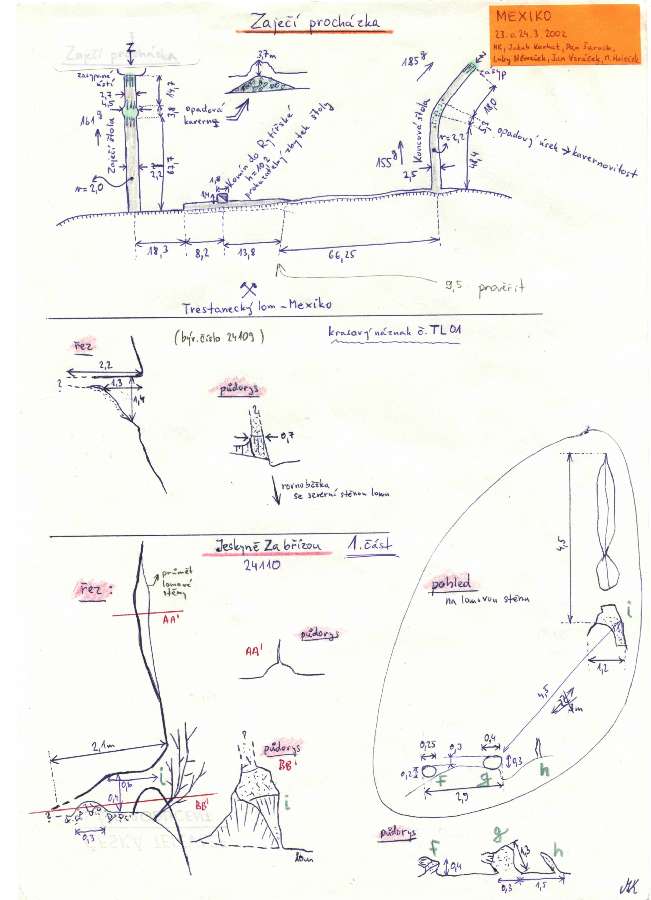 Zaječí procházka
MEXIKO
23. a 24.3. 2002
Zaječí procházka
Z
zasypané
ústí
2,7
14,7
3,8
161g
Zaječí štola
63,7
2,2
r=2,0
3,7m
opadová
kaverna
Komín do Rytířské
h=10,2
prokazatelný zbytek štoly
1,8
1,4
18,3
8,2
13,8
66,25
185g
zásyp
18,0
5,3
opadový úsek → kavernovitost
Koncová štola
155g
r=2,2
18,4
2,5
9,5 prověřit
Trestanecký lom - Mexiko
(býv. číslo 24109)
krasový náznak č. TL01
řez
2,2
?
1,3
1,4
půdorys
?
0,7
rovnoběžka
se severní stěnou lomu
Jeskyně Za břízou
1. část
24110
řez:
průmět
lomové
stěny
AA'
půdorys
AA'
2,1m
0,6
0,4
i
?
BB'
0,3
?
půdorys
BB'
i
lom
pohled
na lomovou stěnu
4,5
i
1,2
4,5
m
0,25
0,3
0,4
0,3
0,2
f
g
h
2,9
půdorys
f
g
h
0,4
1,3
0,3
1,5
MK